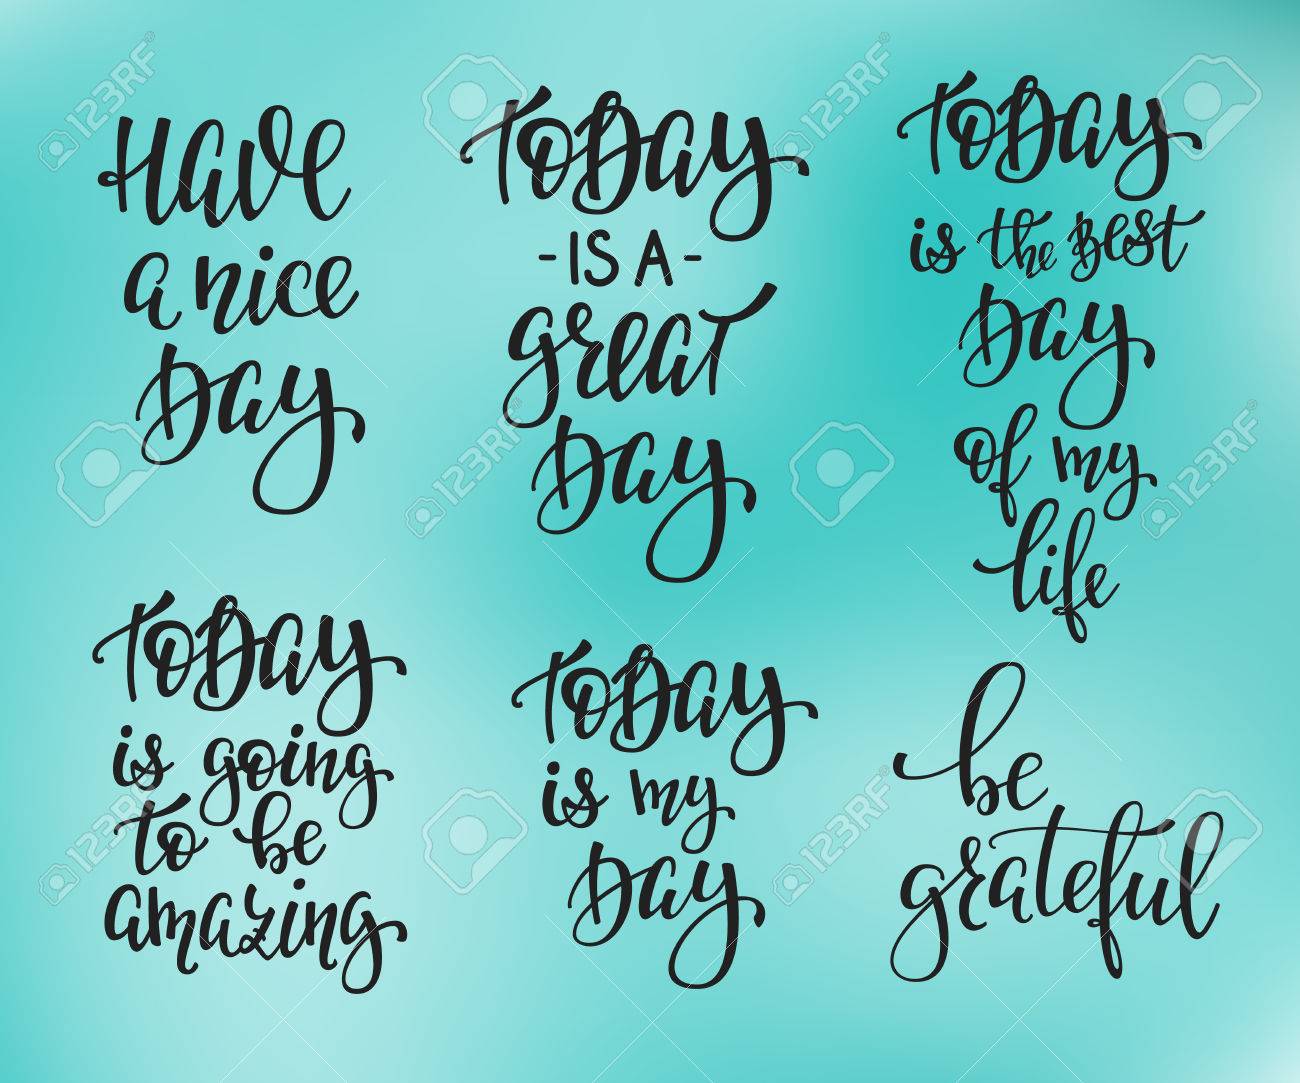 Have
a nice
Day
Today
- IS A -
great
Day
Today
is the Best
Day
of my
life
Today
is going
to be
amazing
Today
is my
Day
be
grateful
123RF
123RF
123RF
123RF
123RF
123RF
123RF